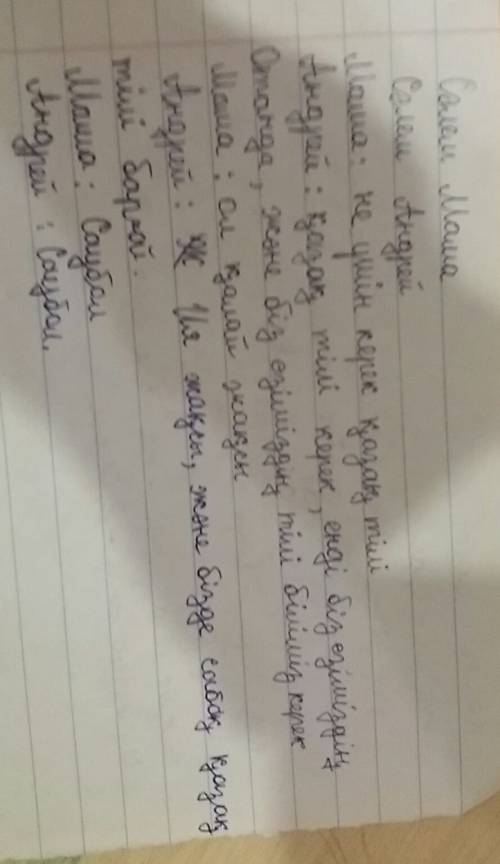 Сәлем Маша
Сәлем Андрей
Маша: не үшін керек қазақ тілі
Андрей: қазақ тілі керек, енді біз өзіміздің
Отанда, және біз өзіміздің тілі біліміз керек
Маша: ол қалай жақсы
Андрей: Ия жақсы, және бізде сабақ қазақ
тілі барғой.
Маша: Саубол
Андрей: Саубол.